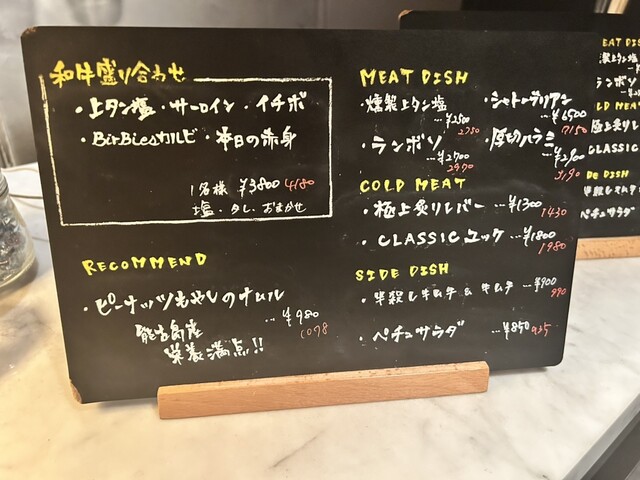 和牛盛り合わせ
・上タン塩・サーロイン・イチボ
・BirBiesカルビ・本日の赤身
1名様 ¥3800 4180
塩・タレ おまかせ
RECOMMEND
・ピーナッツもやしのナムル
…¥980
1078
能古島産
栄養満点!!
MEAT DISH
・燻製上タン塩
…¥2500
2750
・シャトーブリアン
…¥6500
7150
・ランボソ
…¥2700
2970
・厚切ハラミ
…¥2900
3190
COLD MEAT
・極上炙りレバー …¥1300
1430
・CLASSICユッケ …¥1800
1980
SIDE DISH
・半殺しキムチ & キムチ …¥900
990
・ペチュサラダ …¥850 935
EAT DIS
ランボソ
OLD MEAT
極上炙りレ
CLASSIC
DE DISH
半殺しキム
ペチュサラダ